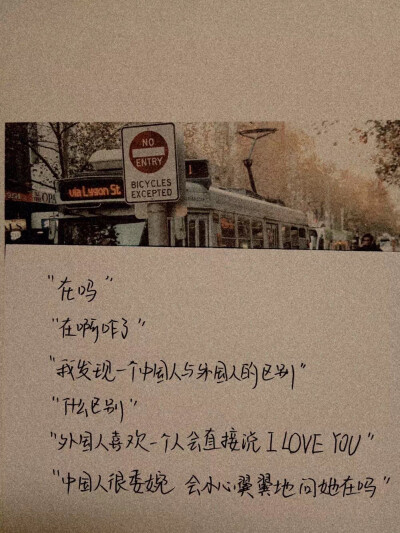 NO
ENTRY
BICYCLES
EXCEPTED
via Lygon St
1
"在吗"
"在啊咋了"
"我发现一个中国人与外国人的区别"
"什么区别"
"外国人喜欢一个人会直接说 I LOVE YOU"
"中国人很委婉 会小心翼翼地问她在吗"